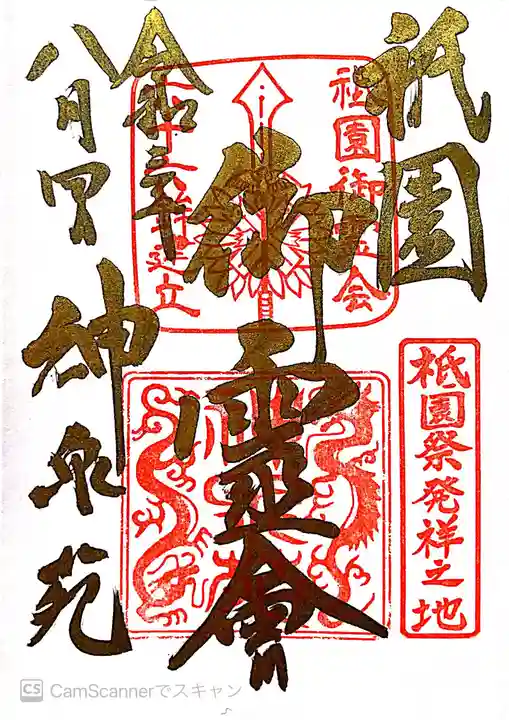 祇園
祇園御霊会
祇園祭発祥之地
御靈會
建立
令和三年
八月四日
神泉苑
CS CamScannerでスキャン